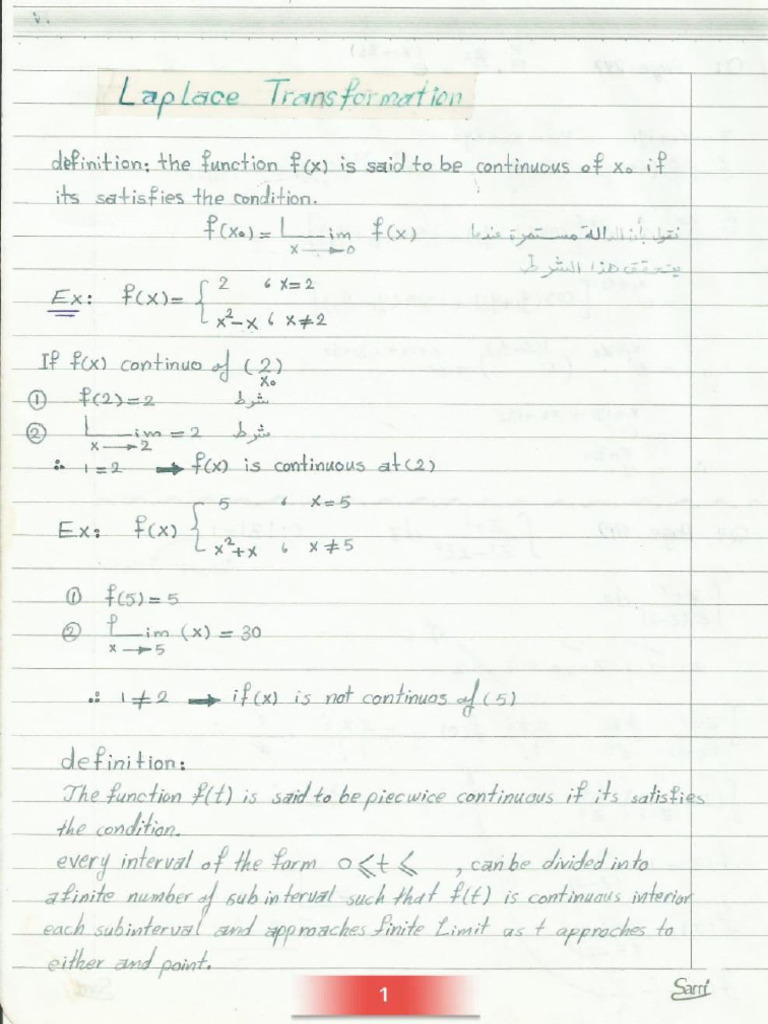 Laplace Transformation
definition: the function f(x) is said to be continuous of x₀ if
its satisfies the condition.
f(x₀) = Lim x→0 f(x) نقول بأن الدالة مستمرة عندما
يتحقق هذا الشرط
Ex: f(x) = { 2 , x=2
x²-x , x≠2
If f(x) continuo of (2)
x₀
① f(2)=2 شرط
② Lim x→2 = 2 شرط
∴ 1=2 → f(x) is continuous at (2)
Ex: f(x) { 5 , x=5
x²+x , x≠5
① f(5)=5
② f Lim x→5 (x) = 30
∴ 1≠2 → if(x) is not continuos of (5)
definition:
The function f(t) is said to be piecwice continuous if its satisfies
the condition.
every interval of the form 0⩽t⩽ , can be divided into
a finite number of sub interval such that f(t) is continuous interior
each subinterval and approaches finite Limit as t approches to
either and point.
1
Sarri